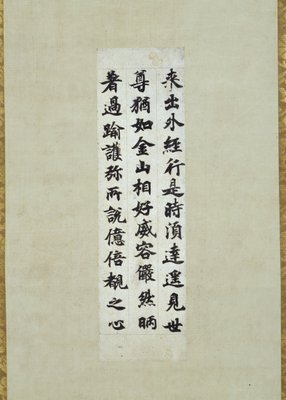 来出外經行是時須達遥見世
尊猶如金山相好威容儼然昞
著過踰護弥所說億倍覩之心